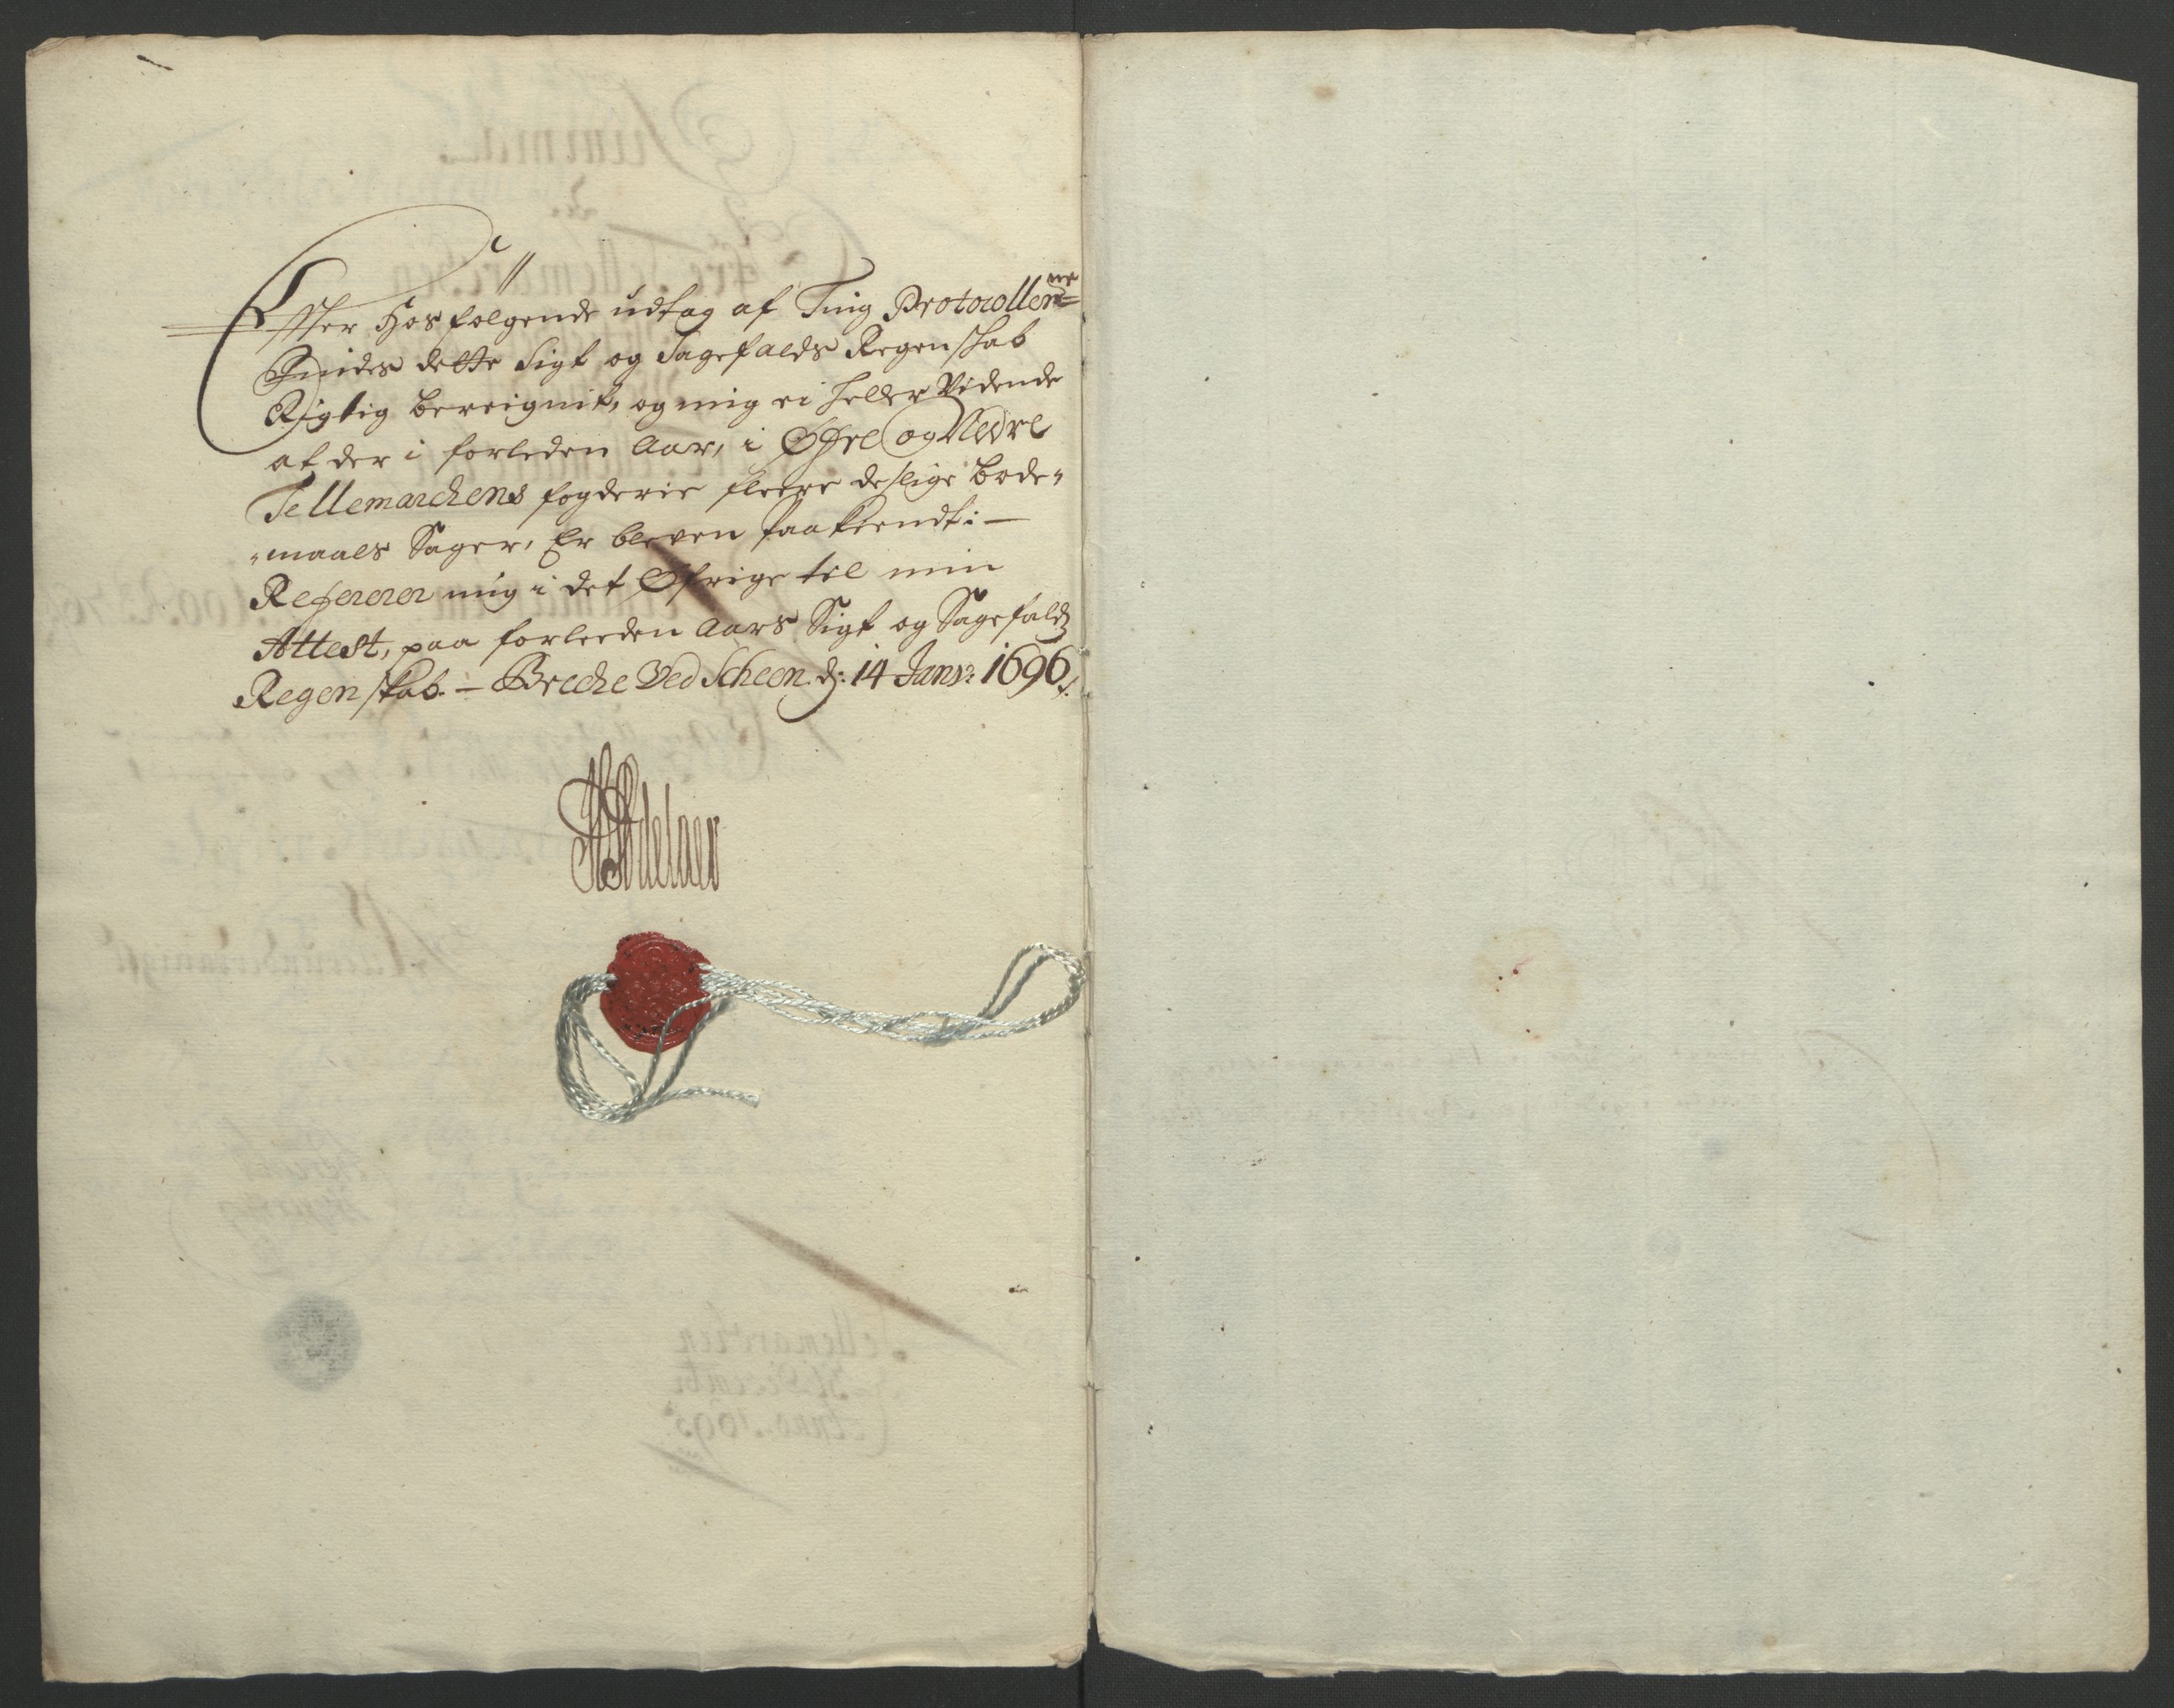 Efter Hos følgende udtog af Ting Protocollerne
findes dette Sigt og Sagefalds Regenskab
Rigtig bereignit, og mig ei heller Vidende
at der i forleden Aar, i Øfre og Nedre
Tellemarchens fogderie fleere deslige bode„
„maals Sager, Er bleven paakiendt: —
Refererer mig i det Øfrige til min
Attest, paa forleeden Aars Sigt og Sagefalds
Regenskab. — Breche Ved Scheen. d: 14 Janv: 1696.
Adelaer